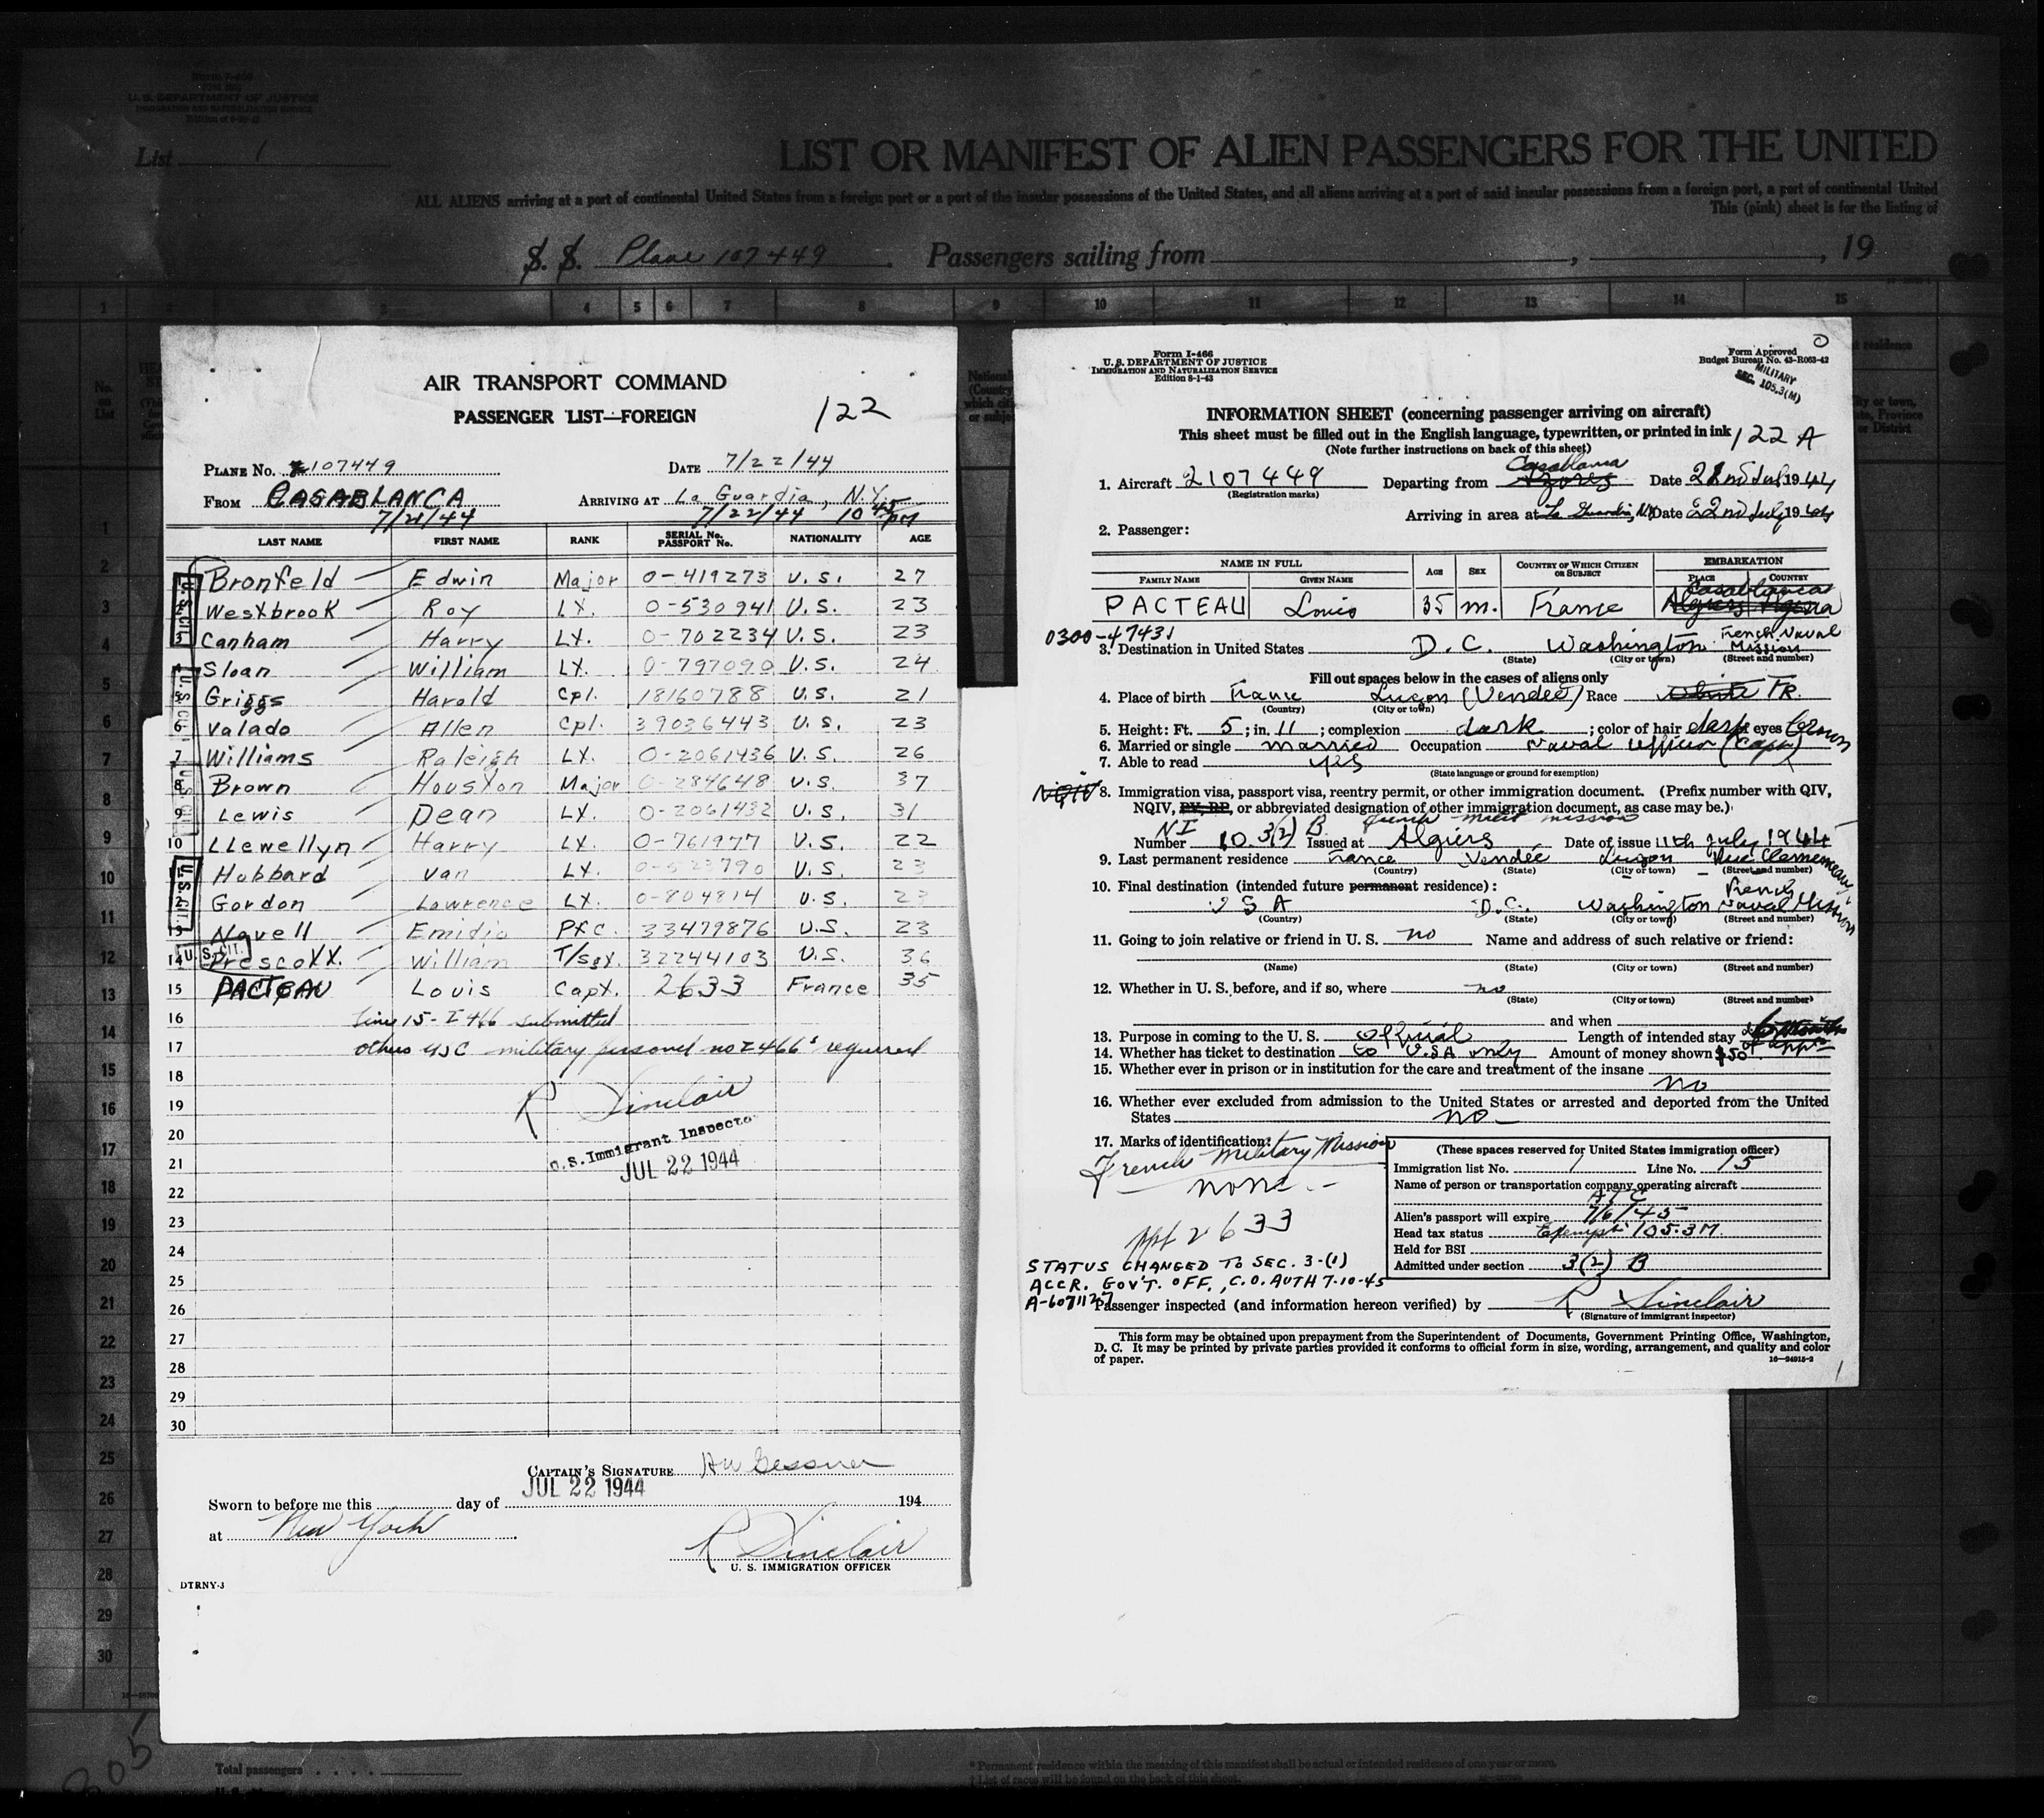 Form I-466
U. S. DEPARTMENT OF JUSTICE
IMMIGRATION AND NATURALIZATION SERVICE
List 1
LIST OR MANIFEST OF ALIEN PASSENGERS FOR THE UNITED
ALL ALIENS arriving at a port of continental United States from a foreign port or a port of the insular possessions of the United States, and all aliens arriving at a port of said insular possessions from a foreign port, a port of continental United
This (pink) sheet is for the listing of
S. S. Plane 107449 Passengers sailing from , , 19
1 2 3 4 5 6 7 8 9 10 11 12 13 14 15
AIR TRANSPORT COMMAND
PASSENGER LIST—FOREIGN
122
PLANE NO. 2107449 DATE 7/22/44
FROM CASABLANCA ARRIVING AT La Guardia, N.Y.
7/21/44 7/22/44 10 45 PM
LAST NAME FIRST NAME RANK SERIAL No. PASSPORT No. NATIONALITY AGE
Bronfeld Edwin Major 0-419273 U.S. 27
Westbrook Roy Lt. 0-530941 U.S. 23
Canham Harry Lt. 0-702234 U.S. 23
4 Sloan William Lt. 0-797090 U.S. 24
5 Griggs Harold Cpl. 18160788 U.S. 21
6 Valado Allen Cpl. 39036443 U.S. 23
7 Williams Raleigh Lt. 0-2061436 U.S. 26
8 Brown Houston Major 0-284648 U.S. 37
9 Lewis Dean Lt. 0-2061432 U.S. 31
10 Llewellyn Harry Lt. 0-761977 U.S. 22
Hubbard Van Lt. 0-523790 U.S. 23
Gordon Lawrence Lt. 0-804814 U.S. 23
13 Navell Emidio Pfc. 33479876 U.S. 23
14 Prescott William T/Sgt. 32244103 U.S. 36
U. S. CIT.
15 PACTEAU Louis Capt. 2633 France 35
16 Line 15- I 466 submitted
17 others USC military personel no I 466's required
18
19 R Sinclair
20 U.S. Immigrant Inspector
21 JUL 22 1944
22
23
24
25
26
27
28
29
30
CAPTAIN'S SIGNATURE HW Gessner
JUL 22 1944
Sworn to before me this day of 194
at New York
R Sinclair
U. S. IMMIGRATION OFFICER
DTRNY-3
Form I-466
U. S. DEPARTMENT OF JUSTICE
IMMIGRATION AND NATURALIZATION SERVICE
Edition 8-1-43
Form Approved
Budget Bureau No. 43-R063-42
MILITARY
SEC. 105.3(M)
INFORMATION SHEET (concerning passenger arriving on aircraft)
This sheet must be filled out in the English language, typewritten, or printed in ink
122 A
(Note further instructions on back of this sheet)
Casablanca
1. Aircraft 2107449 Departing from Azores Date 21 July 1944
(Registration marks)
Arriving in area at La Guardia, NY Date 22nd July 1944
2. Passenger:
NAME IN FULL AGE SEX COUNTRY OF WHICH CITIZEN OR SUBJECT EMBARKATION
FAMILY NAME GIVEN NAME PLACE COUNTRY
Casablanca
PACTEAU Louis 35 m. France Algiers Algeria
0300-47431
3. Destination in United States D.C. Washington French Naval Mission
(State) (City or town) (Street and number)
Fill out spaces below in the cases of aliens only
4. Place of birth France Luçon (Vendée) Race White FR.
(Country) (City or town)
5. Height: Ft. 5; in. 11; complexion dark; color of hair dark eyes brown
6. Married or single married Occupation Naval Officer (Capt)
7. Able to read yes
(State language or ground for exemption)
NQIV 8. Immigration visa, passport visa, reentry permit, or other immigration document. (Prefix number with QIV,
NQIV, PV, RP, or abbreviated designation of other immigration document, as case may be.)
NI
Number 10 3(2) B Issued at Algiers Date of issue 11th July 1944
9. Last permanent residence France Vendée Luçon Rue Clemenceau
(Country) (State) (City or town) (Street and number)
10. Final destination (intended future permanent residence):
U S A D.C. Washington French Naval Mission
(Country) (State) (City or town) (Street and number)
11. Going to join relative or friend in U. S. no Name and address of such relative or friend:
(Name) (State) (City or town) (Street and number)
12. Whether in U. S. before, and if so, where no
(State) (City or town) (Street and number)
and when
13. Purpose in coming to the U. S. Official Length of intended stay 6 months
14. Whether has ticket to destination to U.S.A only Amount of money shown $50
15. Whether ever in prison or in institution for the care and treatment of the insane
no
16. Whether ever excluded from admission to the United States or arrested and deported from the United
States no
17. Marks of identification:
French Military Mission
none.-
ppt 2633
STATUS CHANGED TO SEC. 3-(1)
ACCR. GOV'T. OFF., C.O. AUTH 7-10-45
A-6071127
(These spaces reserved for United States immigration officer)
Immigration list No. 1 Line No. 15
Name of person or transportation company operating aircraft
ATC
Alien's passport will expire 7/6/45
Head tax status Exempt 105.3M
Held for BSI
Admitted under section 3(2) B
Passenger inspected (and information hereon verified) by R Sinclair
(Signature of immigrant inspector)
This form may be obtained upon prepayment from the Superintendent of Documents, Government Printing Office, Washington,
D. C. It may be printed by private parties provided it conforms to official form in size, wording, arrangement, and quality and color
of paper. 16—34915-2
1
305
Total passengers
* Permanent residence within the meaning of this manifest shall be actual or intended residence of one year or more.
† List of races will be found on the back of this sheet.